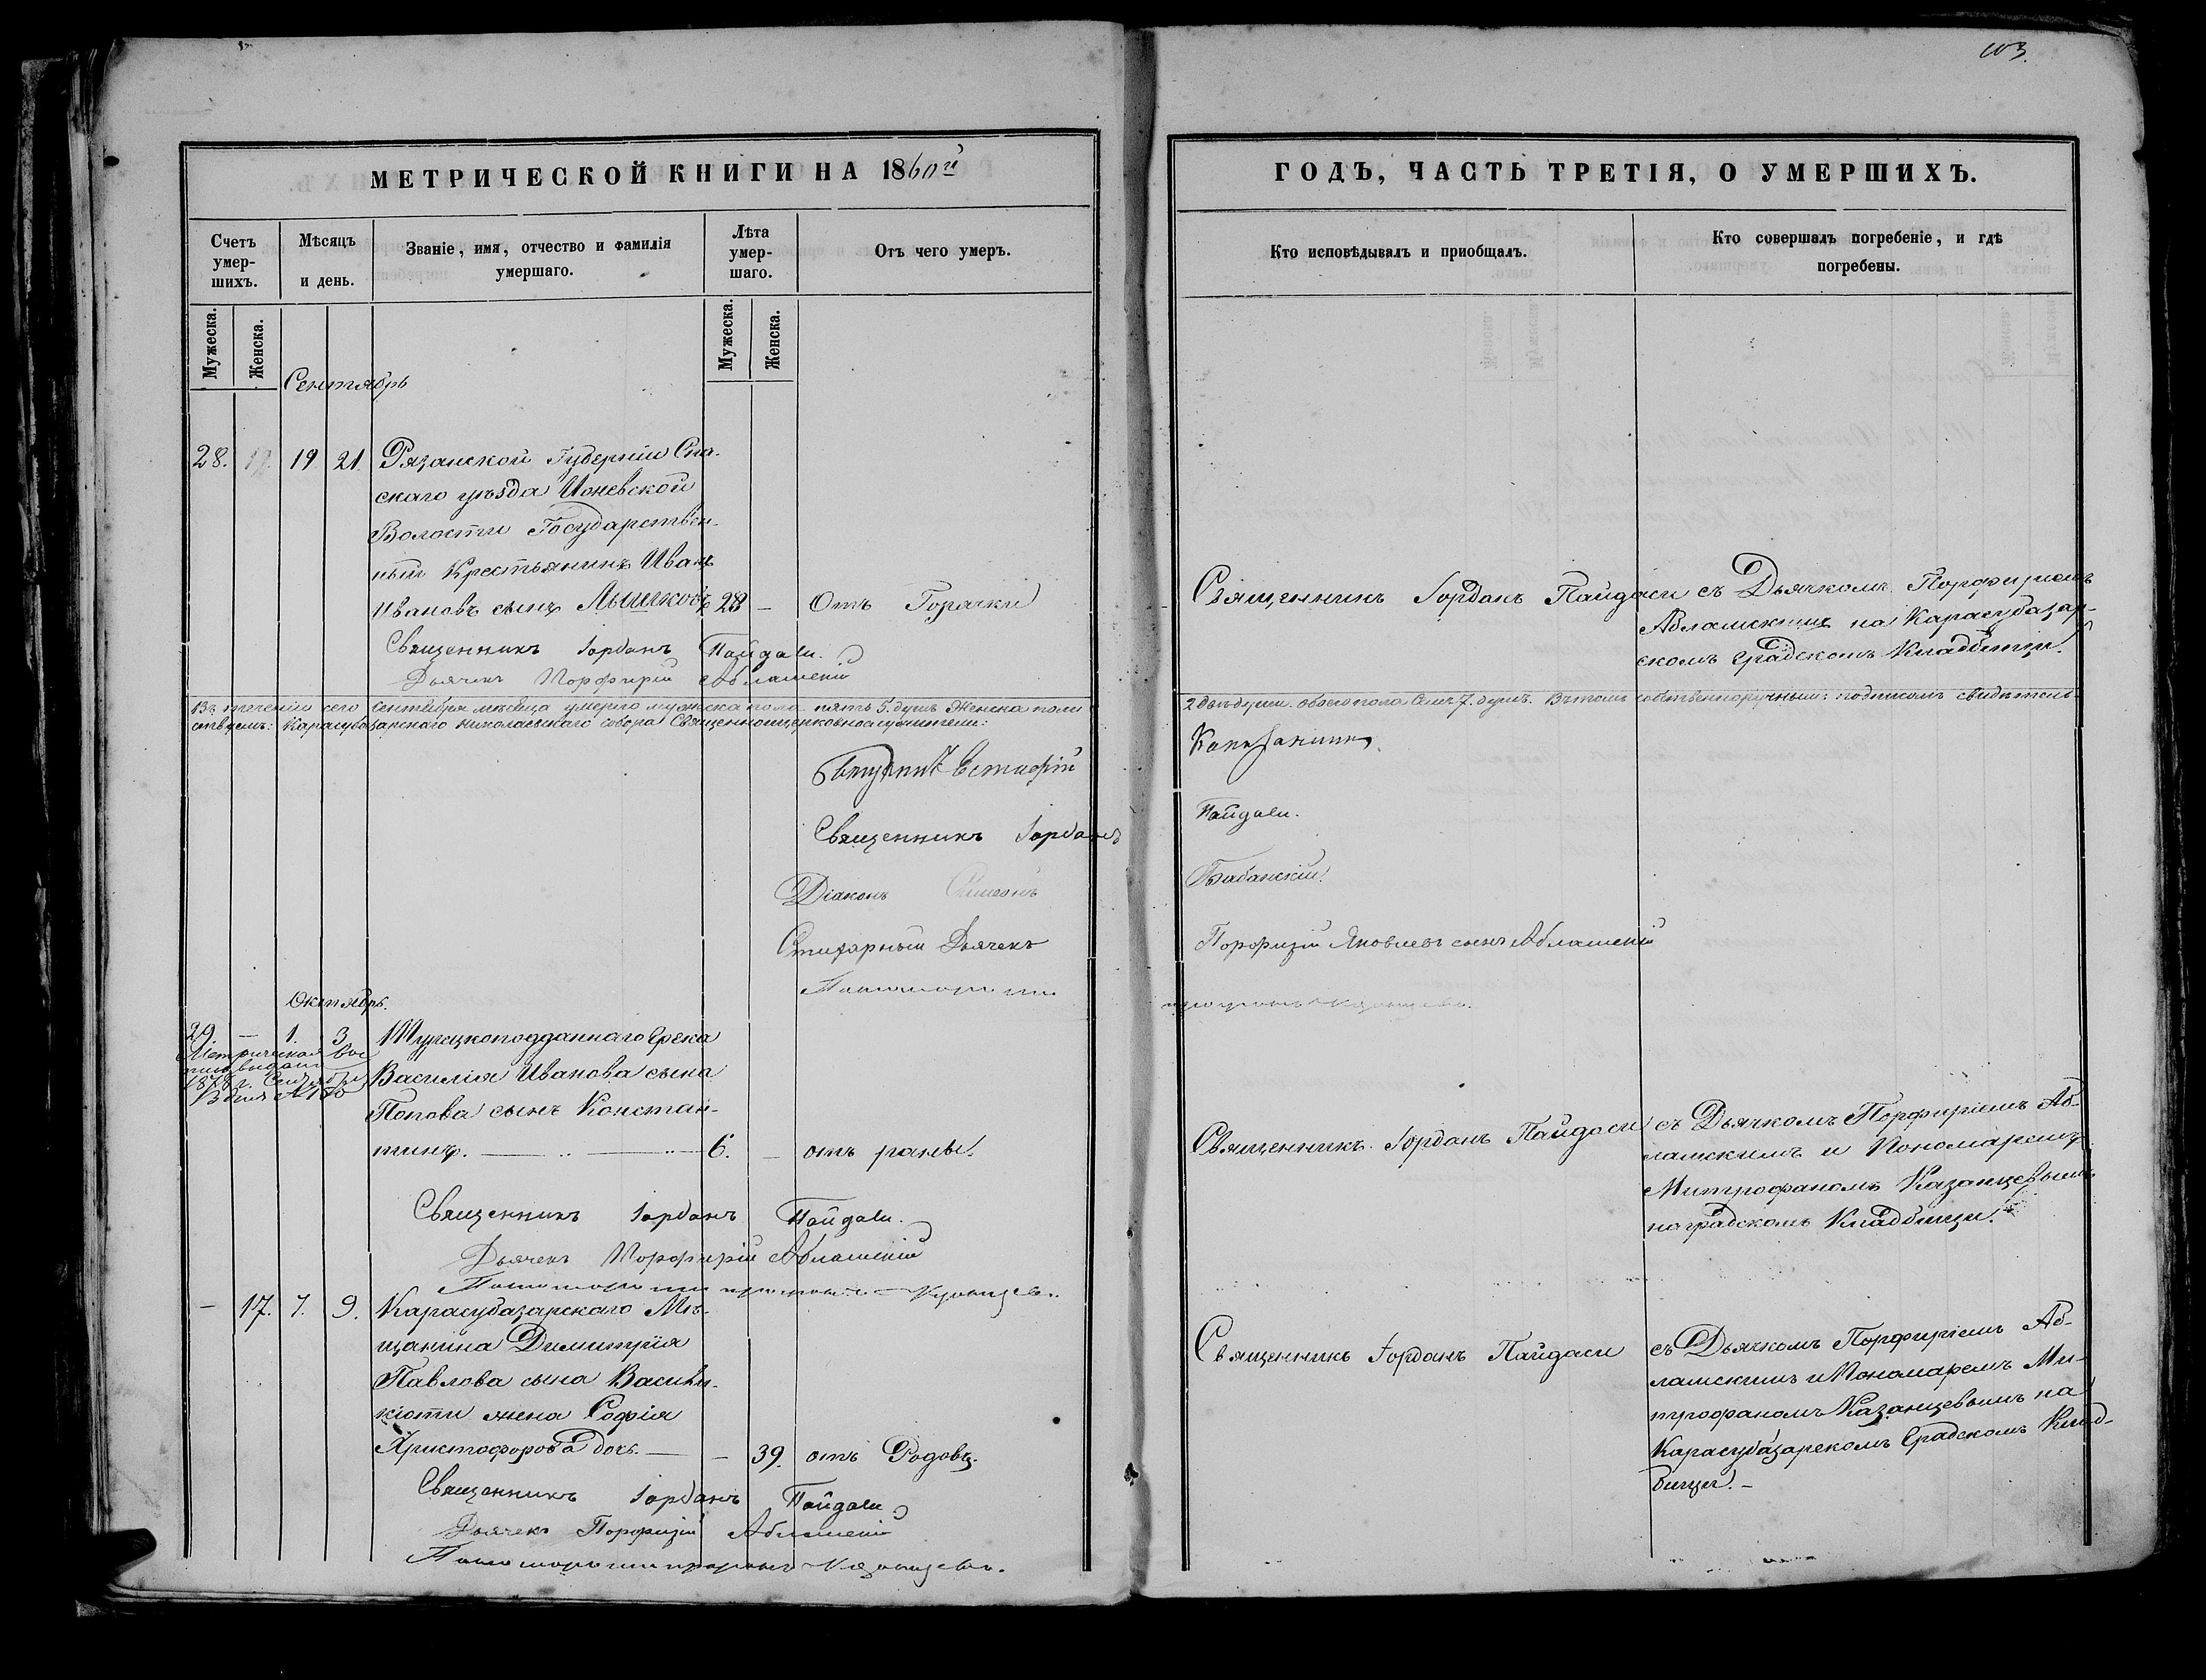 103.
МЕТРИЧЕСКОЙ КНИГИ НА 1860й
Счетъ умершихъ.
Мѣсяцъ и день.
Званіе, имя, отчество и фамилія умершаго.
Лѣта умершаго.
Отъ чего умеръ.
Мужеска.
Женска.
Мужеска.
Женска.
Сентябрь
28. 17. 19 21. Рязанской Губерніи Спа-
скаго уѣзда Ижевской
Волости Государствен-
ный Крестьянинъ Иванъ
Ивановъ сынъ Мышковъ 28 — Отъ Горячки
Священникъ Іорданъ Пайдаси.
Дьячекъ Порфирій Абламскій
Въ теченіи сего Сентября мѣсяца умерло мужеска пола пять 5. душъ Женска пола
ствуемъ: Карасубазарскаго Николаевскаго собора Священноцерковнослужители:
Священникъ Іорданъ
Діаконъ Симеонъ
Стихарный Дьячекъ
Пономарь
Октябрь.
29. — 1. 3 Турецкоподданнаго Грека
Метрическая
выдана
1878 г. Сентября
Василія Иванова сына
Попова сынъ Констан-
тинъ. 6. — отъ раны.
Священникъ Іорданъ Пайдаси.
Дьячекъ Порфирій Абламскій
Пономарь Митрофанъ Казанцевъ.
— 17. 7. 9. Карасубазарскаго Мѣ-
щанина Димитрія
Павлова сына Васильи-
кіоти жена Софія
Христофорова дочь. — — 39. отъ Родовъ.
Священникъ Іорданъ Пайдаси
Дьячекъ Порфирій Абламскій
Пономарь Митрофанъ Казанцевъ.
ГОДЪ, ЧАСТЬ ТРЕТІЯ, О УМЕРШИХЪ.
Кто исповѣдывалъ и приобщалъ.
Кто совершалъ погребеніе, и гдѣ погребены.
Священникъ Іорданъ Пайдаси съ Дьячкомъ Порфиріемъ
Абламскимъ на Карасубазар-
скомъ Градскомъ Кладбищи.
2 двѣ души. обоего пола Семь 7. душъ. Въ томъ собственноручнымъ: подписомъ свидѣтель-
Пайдаси.
Бабанскій.
Порфирій Яковлевъ сынъ Абламскій
Митрофанъ Казанцевъ.
Священникъ Іорданъ Пайдаси съ Дьячкомъ Порфиріемъ Аб-
ламскимъ и Пономаремъ
Митрофаномъ Казанцевымъ
на градскомъ Кладбищи.
Священникъ Іорданъ Пайдаси съ Дьячкомъ Порфиріемъ Аб-
ламскимъ и Пономаремъ Ми-
трофаномъ Казанцевымъ на
Карасубазарскомъ Градскомъ Клад-
бищи. —